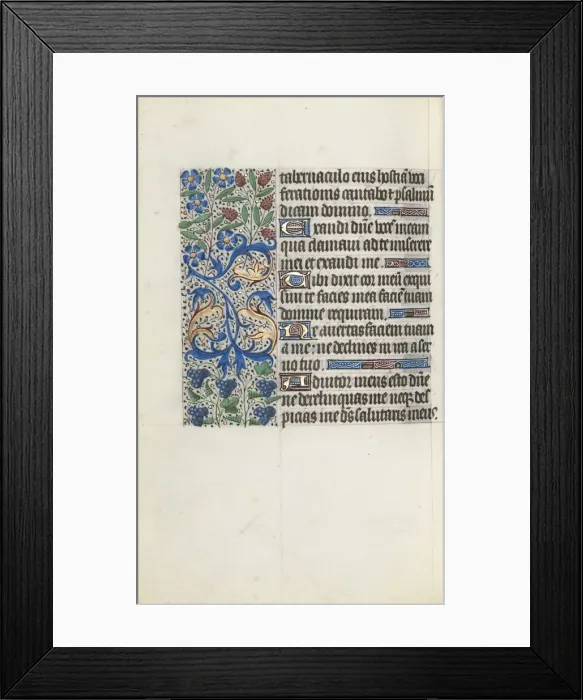 tabernaculo eius hostiã voci
ferationis cantabo & psalmũ
dicam domino.
Exaudi dñe vocẽ meam
qua clamaui ad te miserere
mei et exaudi me.
Tibi dixit cor meũ exqui
siuit te facies mea faciẽ tuam
domine requiram.
Ne auertas faciem tuam
a me: ne declines in ira a ser
uo tuo.
Adiutor meus esto dñe
ne derelinquas me neqz des
picias me ds salutaris meus.